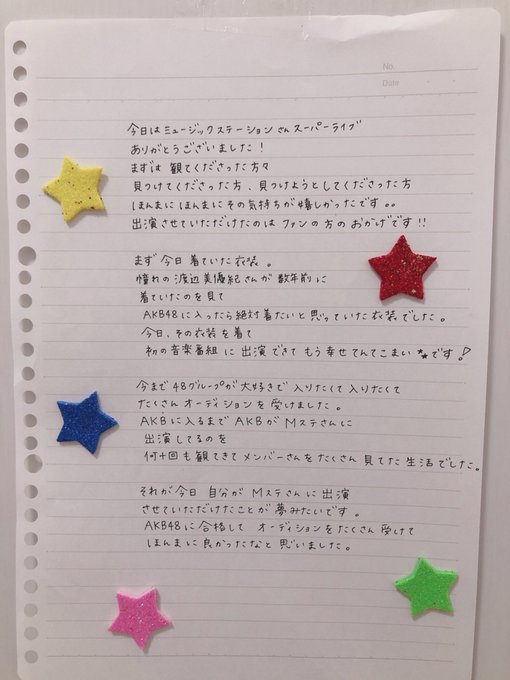 No.
Date
今日はミュージックステーションさんスーパーライブ
ありがとうございました！
まずは 観てくださった方々
見つけてくださった方、見つけようとしてくださった方
ほんまにほんまにその気持ちが嬉しかったです。。
出演させていただけたのは ファンの方のおかげです!!
まず今日着ていた衣装。
憧れの渡辺美優紀さんが数年前に
着ていたのを見て
AKB48に入ったら絶対着たいと思っていた衣装でした。
今日、その衣装を着て
初の音楽番組に出演できて もう幸せてんてこまいです！
今まで48グループが大好きで入りたくて入りたくて
たくさんオーディションを受けました。
AKBに入るまでAKBがMステさんに
出演してるのを
何十回も観てきてメンバーさんをたくさん見てた生活でした。
それが今日 自分がMステさんに出演
させていただけたことが夢みたいです。
AKB48に合格して オーディションをたくさん受けて
ほんまに良かったなと思いました。